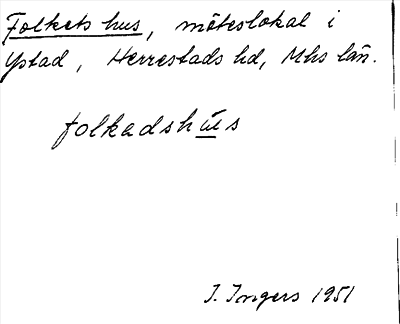 Folkets hus, möteslokal i
Ystad, Herrestads hd, Mhs län.
folkadshús
I. Ingers 1951